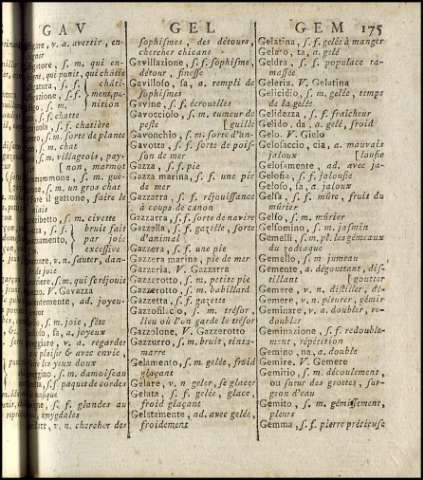 GAV
GEL
GEM 175
v. a. avertir, en-
s. m. qui en-
qui punit, qui châtie
s. f. châti-
nition
s. f. chatte
s. f. chatière
s. m. sorte de plante
s. m. chat
s. m. villageois, pay-
non, marmot
s. m. gue-
un gros chat
il gattone, faire le
s. m. civette
bruit fait
par joie
excessive
v. n. sauter, dan-
de joie
s. m. qui se réjouit
V. Gavazza
ad. joyeu-
s. m. joie, fête
a. joyeux
v. a. regarder
plaisir & avec envie,
les yeux doux
s. m. damoiseau
s. f. paquet de cordes
s. f. glandes au
amygdales
v. n. chercher des
sophismes, des détours,
chercher chicane
Gavillazione, s. f. sophisme,
détour, finesse
Gavilloso, sa, a. rempli de
sophismes
Gavine, s. f. écrouelles
Gavocciolo, s. m. tumeur de
peste [guille
Gavonchio, s. m. sorte d'an-
Gavotta, s. f. sorte de pois-
son de mer
Gazza, s. f. pie
Gazza marina, s. f. une pie
de mer
Gazzarra, s. f. réjouissance
à coups de canon
Gazzarra, s. f. sorte de navire
Gazzella, s. f. gazelle, sorte
d'animal
Gazzera, s. f. une pie
Gazzera marina, pie de mer
Gazzeria. V. Gazzarra
Gazzerotto, s. m. petite pie
Gazzerotto, s. m. babillard
Gazzetta, s. f. gazette
Gazzofilacio, s. m. trésor,
lieu où l'on garde le trésor
Gazzolone, V. Gazzerotto
Gazzurro, s. m. bruit, tinta-
marre
Gelamento, s. m. gelée, froid
glaçant
Gelare, v. n. geler, se glacer
Gelata, s. f. gelée, glace,
froid glaçant
Gelatamente, ad. avec gelée,
froidement
Gelatina, s. f. gelée à manger
Gelato, ta, a. gelé
Geldra, s. f. populace ra-
massée
Geleria. V. Gelatina
Gelicidio, s. m. gelée, temps
de la gelée
Gelidezza, s. f. fraîcheur
Gelido, da, a. gelé, froid
Gelo. V. Gielo
Gelosaccio, cia, a. mauvais
jaloux [lousie
Gelosamente, ad. avec ja-
Gelosia, s. f. jalousie
Geloso, sa, a. jaloux
Gelsa, s. f. mûre, fruit du
mûrier
Gelso, s. m. mûrier
Gelsomino, s. m. jasmin
Gemelli, s. m. pl. les gémeaux
du zodiaque
Gemello, s. m. jumeau
Gemente, a. dégouttant, dis-
tillant [goutter
Gemere, v. n. distiller, dé-
Gemere, v. n. pleurer, gémir
Geminare, v. a. doubler, re-
doubler
Geminazione, s. f. redouble-
ment, répétition
Gemino, na, a. double
Gemire. V. Gemere
Gemitio, s. m. découlement,
ou sueur des grottes, sur-
geon d'eau
Gemito, s. m. gémissement,
pleurs
Gemma, s. f. pierre précieuse